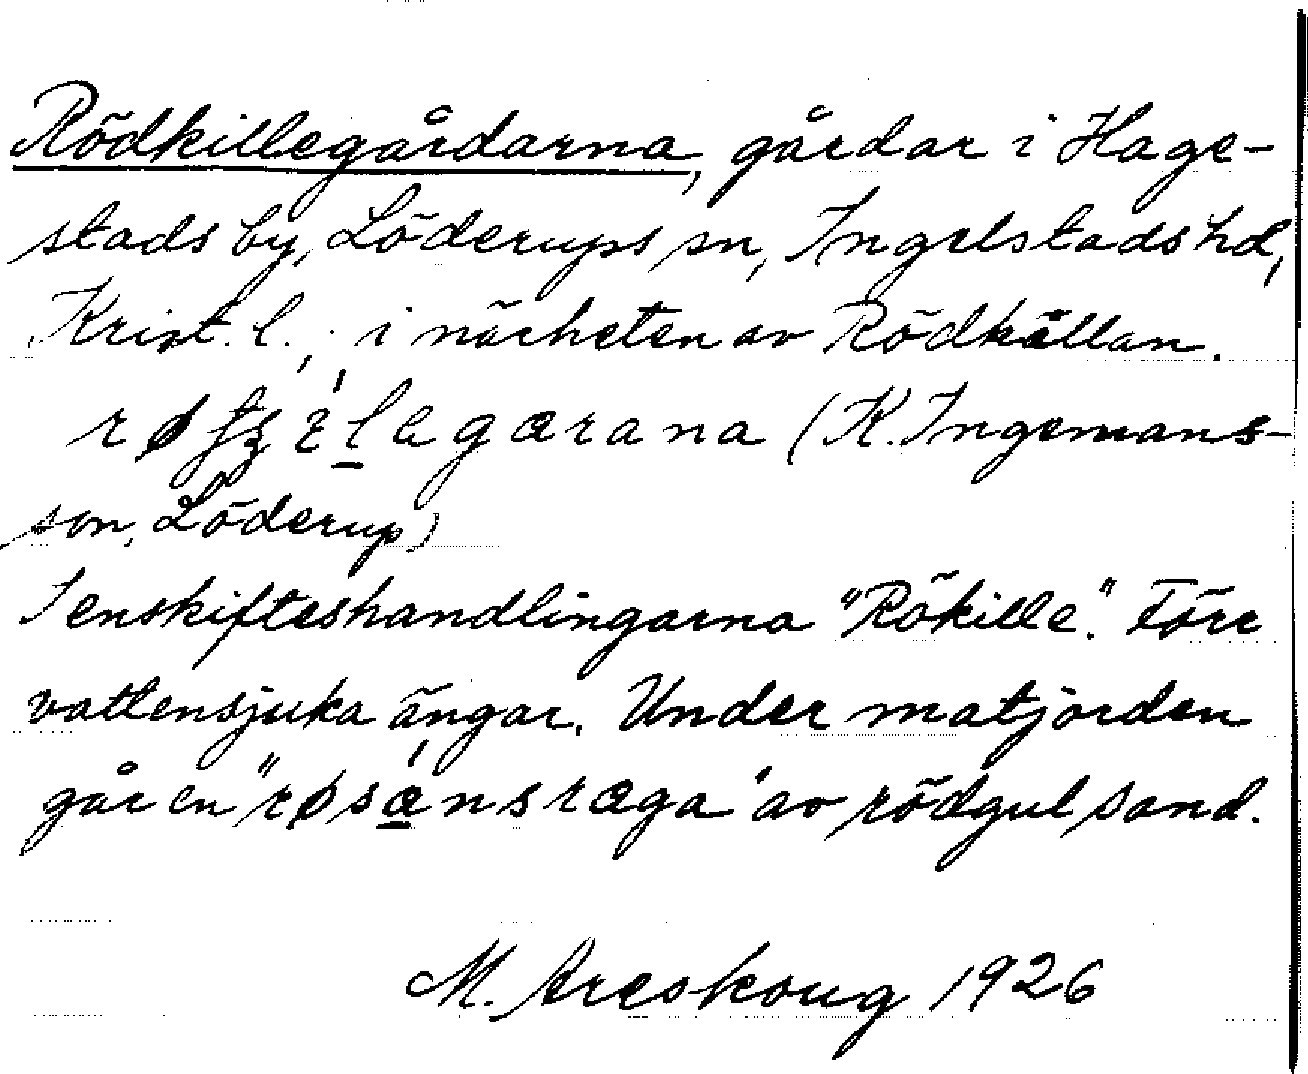 Rödkillegårdarna, gårdar i Hage-
stads by, Löderups sn, Ingelstads hd,
Krist. l.; i närheten av Rödkällan.
(K. Ingemans-
son, Löderup)
I enskifteshandlingarna "Rökille". Förr
vattensjuka ängar. Under matjorden
går en "røsænsræga" av rödgul sand.
M. Areskoug 1926